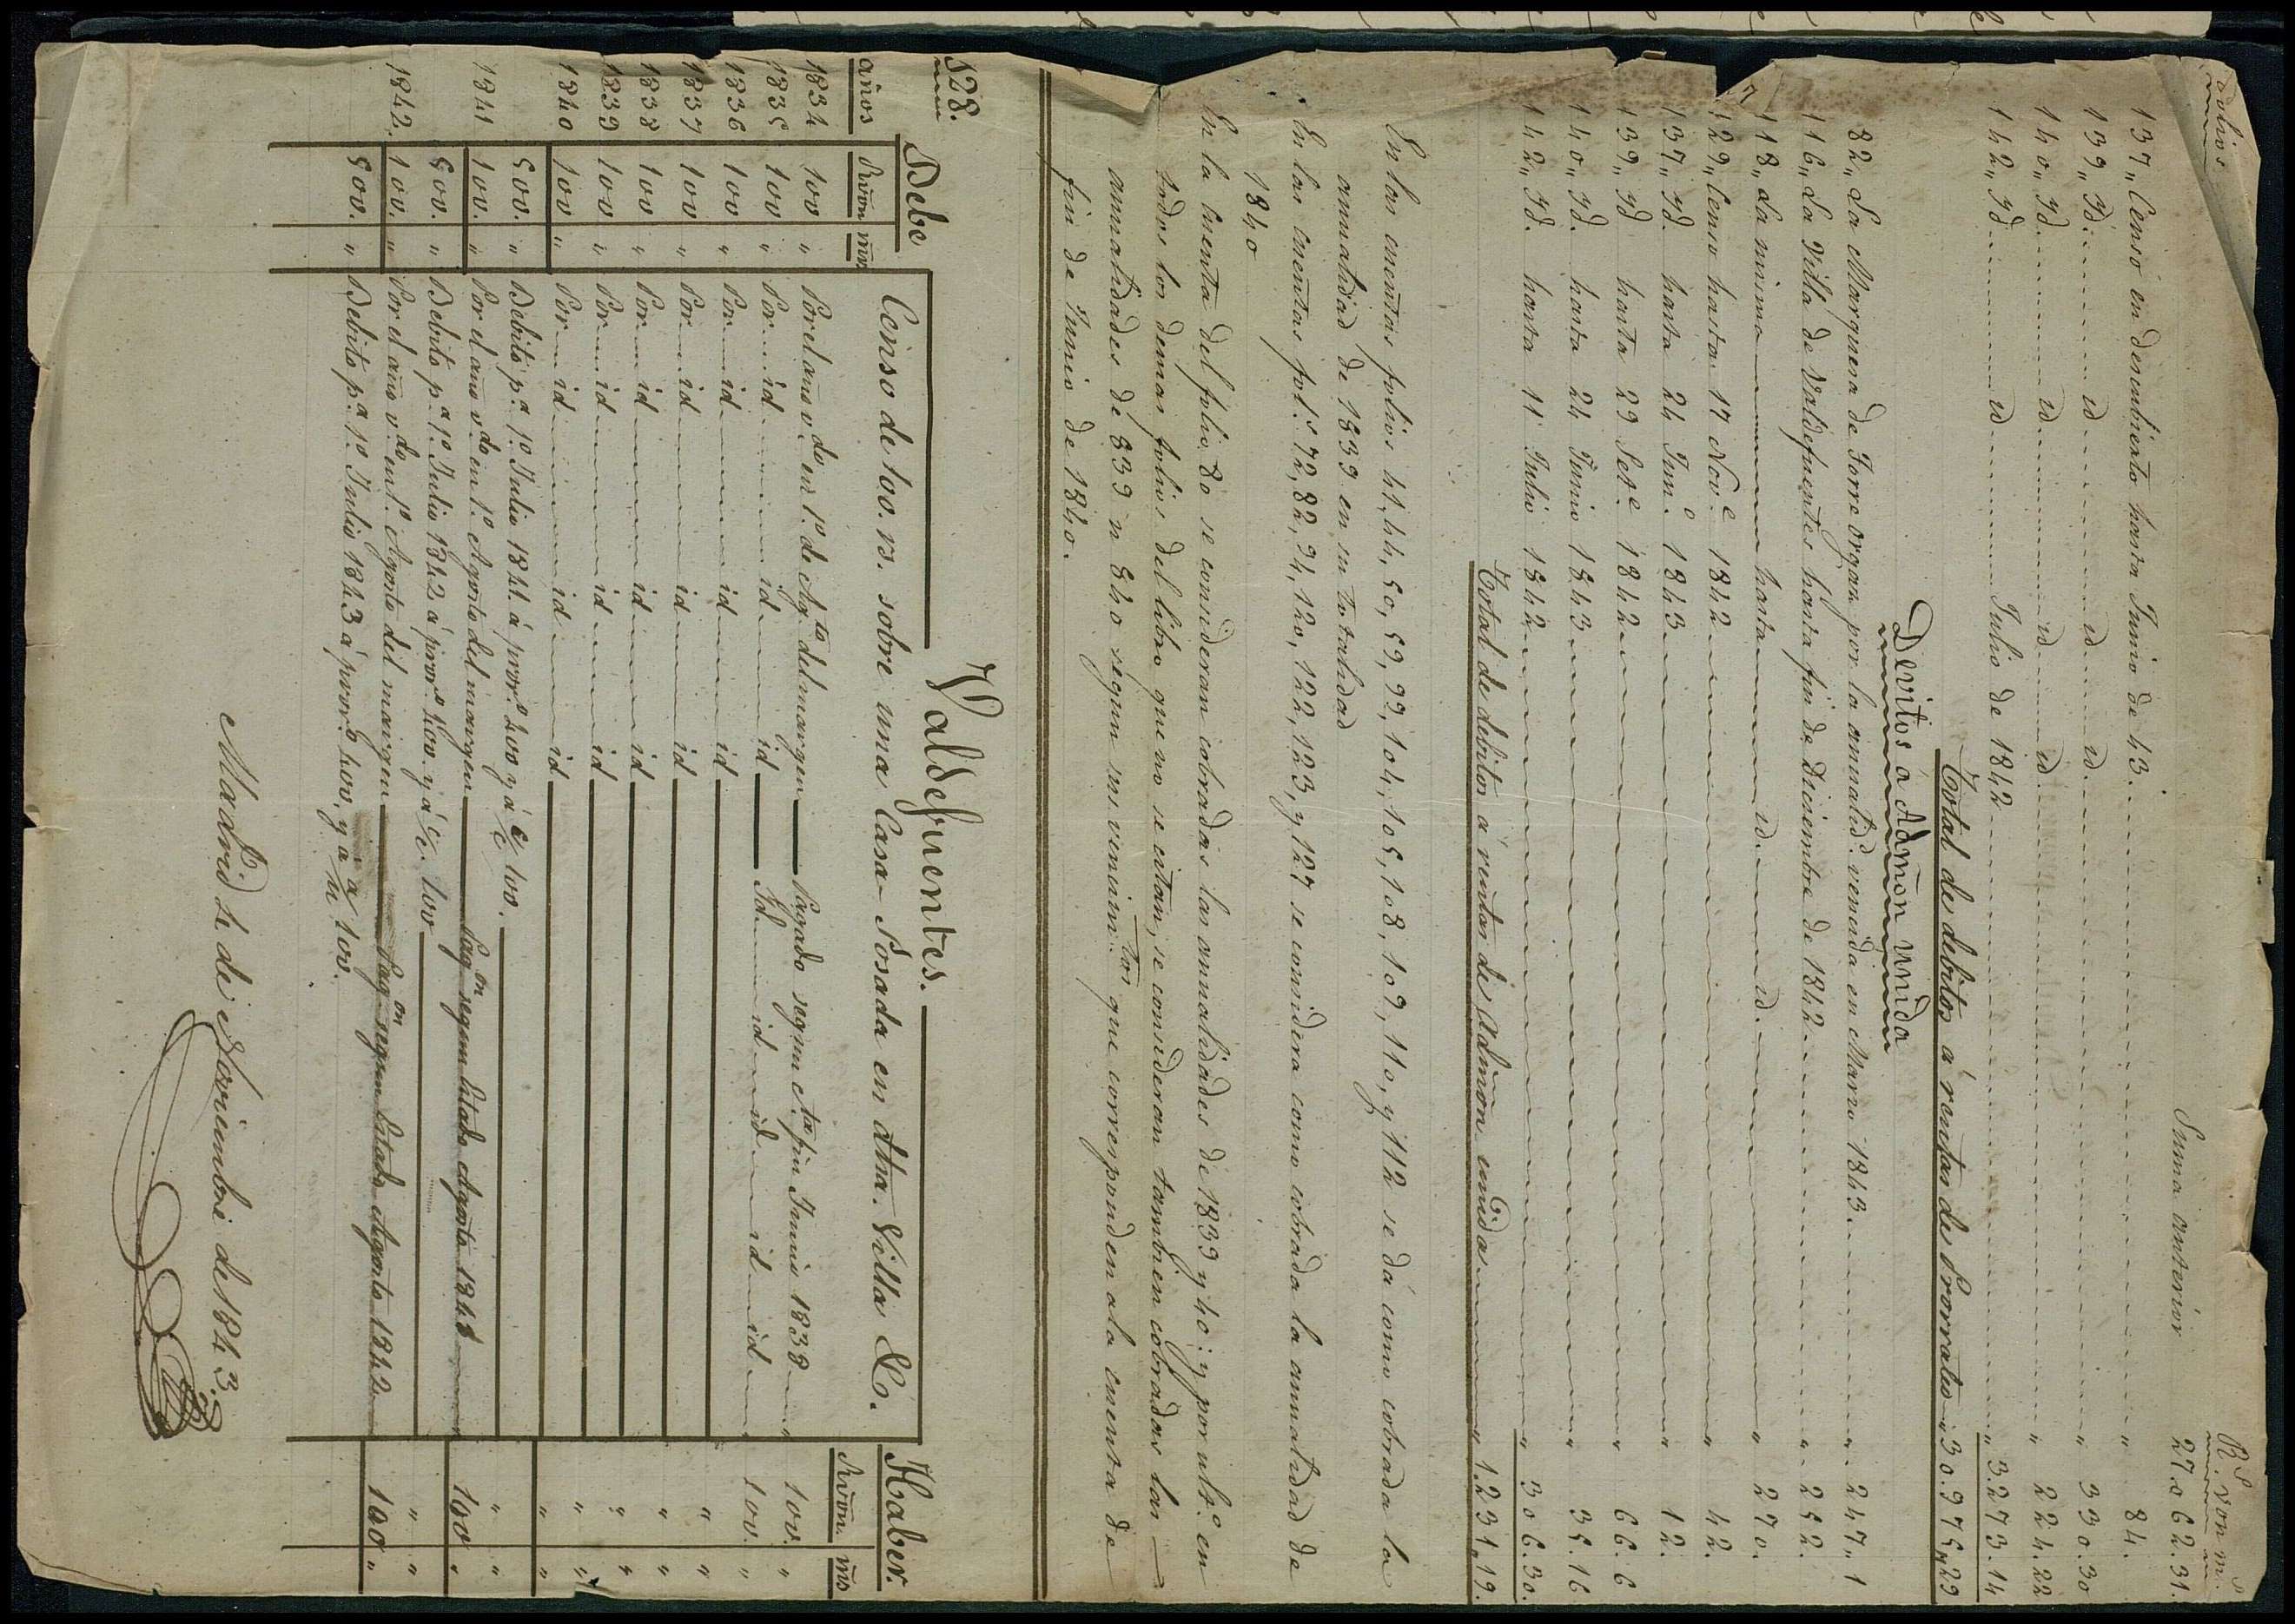 Folios R.s von m.s
Suma anterior 27.062.31.
137,, Censo en descubierto hasta Junio de 43. 84.
139,, Yd. id id id 330.30
140,, Yd. id id id 224.22
142,, Yd. id Julio de 1842 3.273.14
Total de debitos á rentas de Prorrateo 30.975,,29
Devitos á Admon unida
82,, La Marquesa de Torre orgaz por la anualid.d vencida en Marzo 1843. 247,,1
116,, La Villa de Valdefuentes hasta fin de Diciembre de 1842 252.
118,, La misma hasta id. id. 270.
129,, Censo hasta 17 Nov.e 1842 42.
137,, Yd. hasta 24 Jun.o 1843 12.
139,, Yd hasta 29 Set.e 1842 66.6
140,, Yd. hasta 24 Junio 1843 35.16
142,, Yd. hasta 11 Julio 1842 306.30.
Total de debitos á rentas de Admon unida 1231,,19.
En las cuentas folios 41, 44, 50, 59, 99, 104, 105, 108, 109, 110, y 112 se dá como cobrada la
anualidad de 1839 en su totalidad
En las cuentas fol.s 72, 82, 94, 120, 122, 123, y 127 se considera como cobrada la anualidad de
1840
En la cuenta del folio 80 se consideran cobradas las anualidades de 1839 y 40: y por ult.o en
todos los demas folios del libro que no se citan, se consideran tambien cobradas las
anualidades de 839 y 840 segun sus vencim.tos que corresponden a la cuenta de
fin de Junio de 1840.
128. Valdefuentes.
Debe Censo de 100. rs. sobre una Casa-Posada en dha. Villa &c. Haber.
años Rvon mrs Rvon. ms
1834 100 " Por el año v.do en 1.o de Ag.to del margen Pagado segun c.ta fin Junio 1838 100. "
1835 100 " Por id id id Id id id id id 100. "
1836 100 " Por id id id " "
1837 100 " Por id id id " "
1838 100 " Por id id id " "
1839 100 " Por id id id " "
1840 100 " Por id id id " "
500. " Debito p.a 1.o Julio 1841 á pror.o 400 y á c/c 100. " "
1841 100. " Por el año v.do en 1.o Agosto del margen Pag.on segun Estado Agosto 1841 100 "
500. " Debito p.a 1.o Julio 1842 á pror.o 400. y á c/c. 100 " "
1842. 100. " Por el año v.do en 1.o Agosto del margen Pag.on segun Estado Agosto 1842 100 "
500. " Debito p.a 1.o Julio 1843 á pror.o 400. y á a/u 100.
Madrid 4 de Noviembre de 1843.